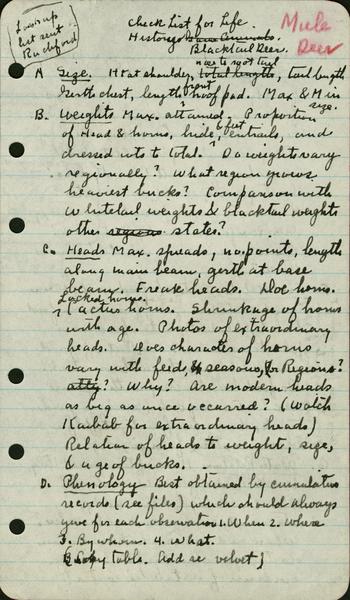 Look up
list sent
Ruchford
Check List for Life
History Game Animals.
Blacktail Deer.
Mule
Deer
nose to root tail
A. Size. Ht at shoulder, total length, tail length
front
Girth chest, length hoof pad. Max & Min
size.
B. Weights Max. attained, Proportion
of Head & horns, hide, feet, entrails, and
dressed wts to total. Do weights vary
regionally? What region grows
heaviest bucks? Comparison with
Whitetail weights & blacktail weights
other regions states?
C. Heads Max. spreads, no. points, length
along main beam, girth at base
beam. Freak heads. Doe horns.
Locked horns.
Cactus horns. Shrinkage of horns
with age. Photos of extraordinary
heads. Does character of horns
vary with feed, & seasons, or Regions?
Why? Are modern heads
as big as once occurred? (Watch
Kaibab for extraordinary heads)
Relation of heads to weight, size,
& age of bucks.
D. Phenology Best obtained by cumulative
records (see files) which should always
give for each observation 1. When 2. Where
3. By whom. 4. What.
table. Add re velvet)